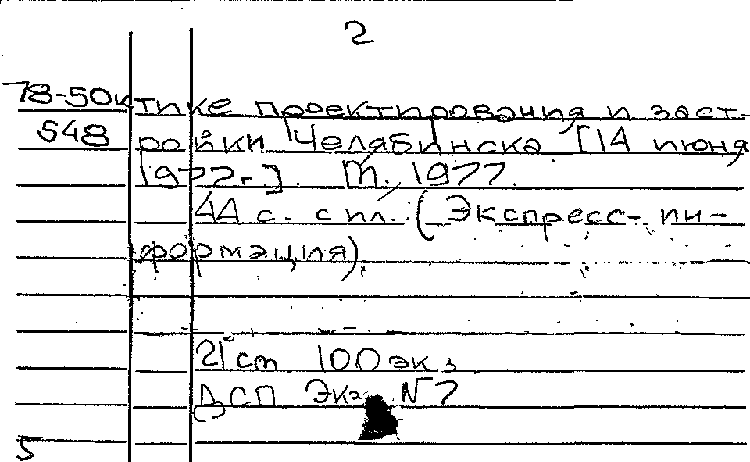 2
78-50к тике проектирования и заст-
548 ройки Челябинска [14 июня
1977г.] М., 1977.
44 с. с ил. (Экспресс-ин-
формация)
21 см 100 экз.
ДСП Экз N7
5